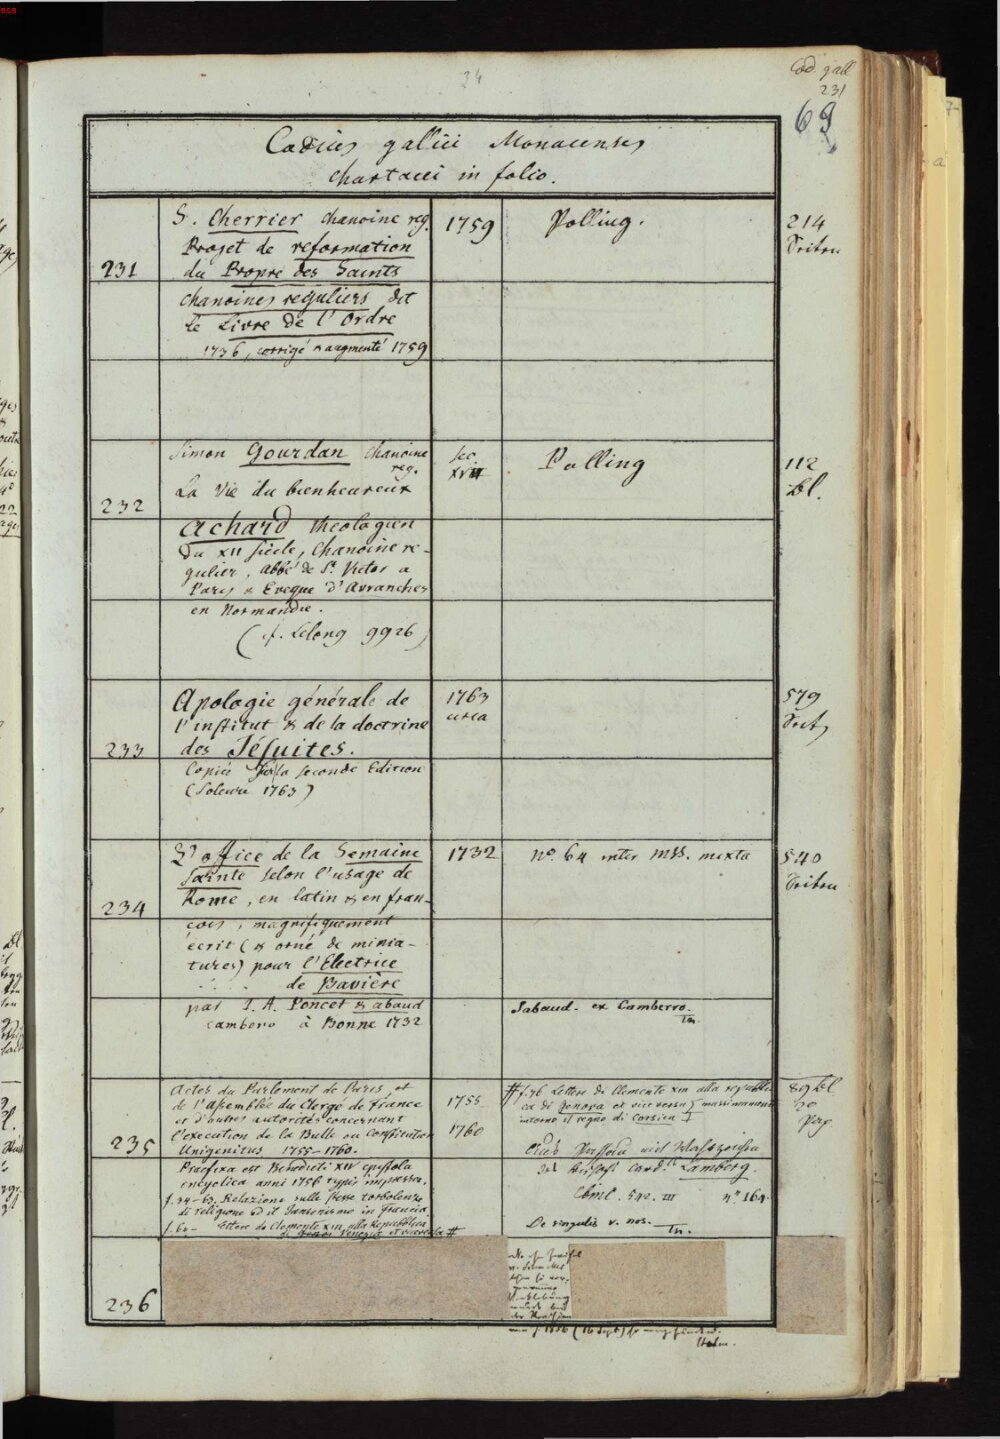 24
Cod. gall
231
69
Codices gallici Monacenses
chartacei in folio.
231
S. Cherrier chanoine reg.
Projet de reformation
du Propre des Saints
chanoines reguliers dit
le Livre de l'Ordre
1736, corrigé & augmenté 1759
1759
Polling.
214
232
Simon Gourdan chanoine
reg.
La Vie du bienheureux
Achard theologien
du XII siècle, Chanoine re-
gulier, Abbé de St. Victor a
Paris & Eveque d'Avranches
en Normandie.
(cf. Lelong 9926)
sec.
Polling
112
Bl.
233
Apologie générale de
l'institut & de la doctrine
des Jésuites.
Copié sur la seconde Edition
(Soleure 1763)
1763
circa
579
234
L'office de la Semaine
Sainte selon l'usage de
Rome, en latin & en fran-
cois, magnifiquement
écrit (& orné de minia-
tures) pour l'Electrice
de Bavière
par J. A. Poncet Sabaud
cambero à Bonne 1732
1732
no. 64 inter mss. mixta
Sabaud. ex Camberro.
Tn.
540
235
Actes du Parlement de Paris, et
de l'Assemblée du Clergé de France
et d'autres autorités concernant
l'execution de la Bulle ou Constitution
Unigenitus 1755-1760.
Praefixa est Benedicti XIV epistola
encyclica anni 1756 typis impressa.
f. 34-63. Relazione sulle stesse torbolenze
di religione ed il Jansenismo in francia.
f. 64- Lettere da Clemente XIII alla Repubblica
di Venezia et viceversa #
1755
1760
# f. 76 Lettere di Clemente XIII alla republi-
ca di Genova et vice versa massimamente
intorno il regno di Corsica
Card. Lamberg.
Cbml. 542. III nº 164.
De singulis v. nos. Tn.
89 bl
236